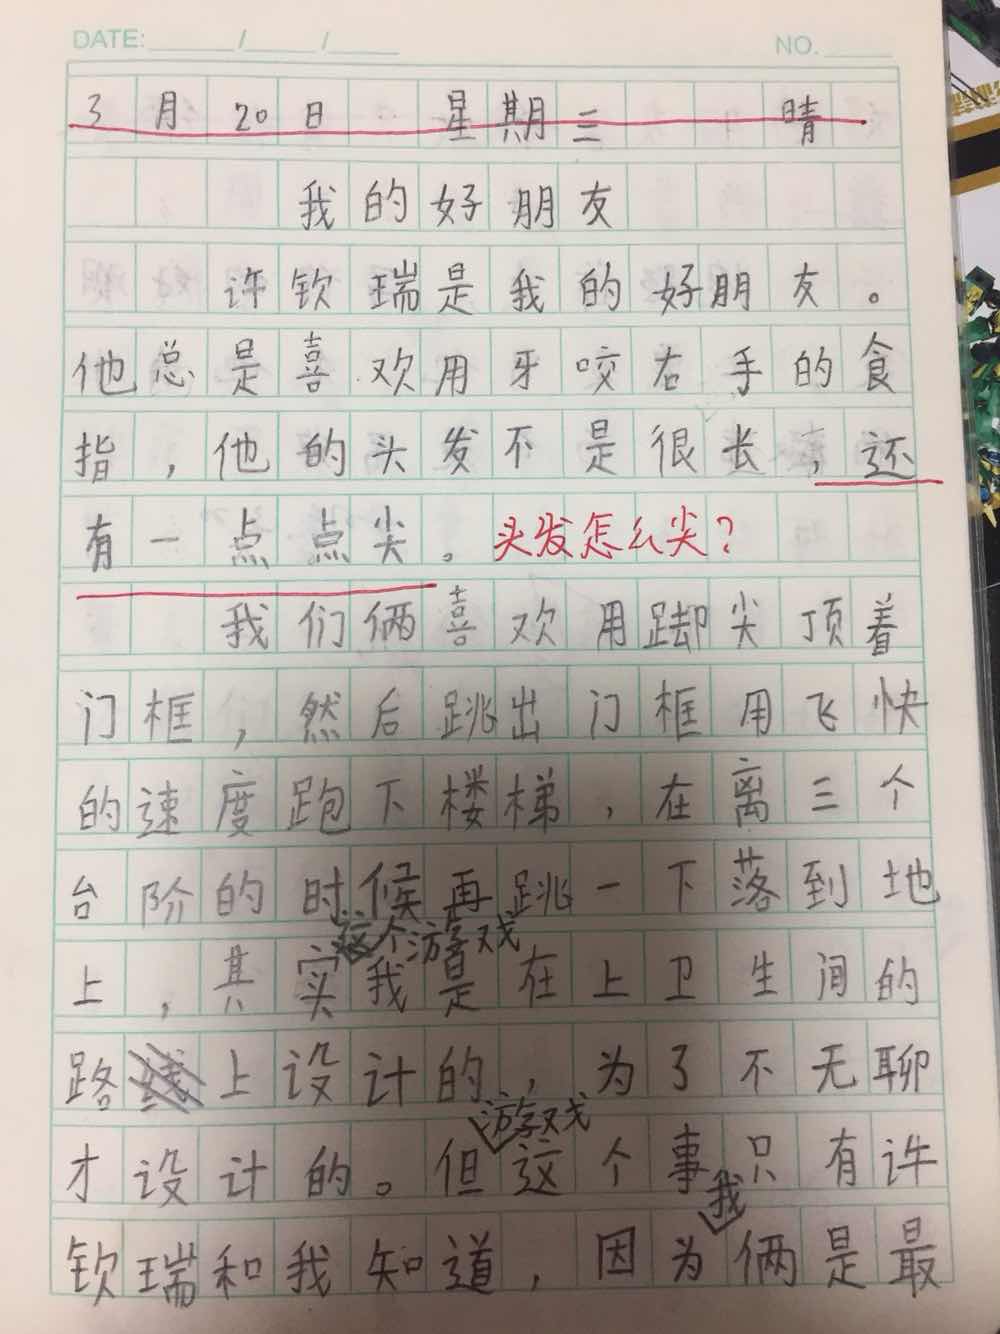 DATE: / /
NO.
3月20日 星期三 晴
我的好朋友
许钦瑞是我的好朋友。
他总是喜欢用牙咬右手的食
指，他的头发不是很长，还
有一点点尖。头发怎么尖？
我们俩喜欢用踋尖顶着
门框，然后跳出门框用飞快
的速度跑下楼梯，在离三个
台阶的时候再跳一下落到地
这个游戏
上，其实我是在上卫生间的
路上设计的，为了不无聊
游戏
才设计的。但这个事只有许
我
钦瑞和我知道，因为俩是最